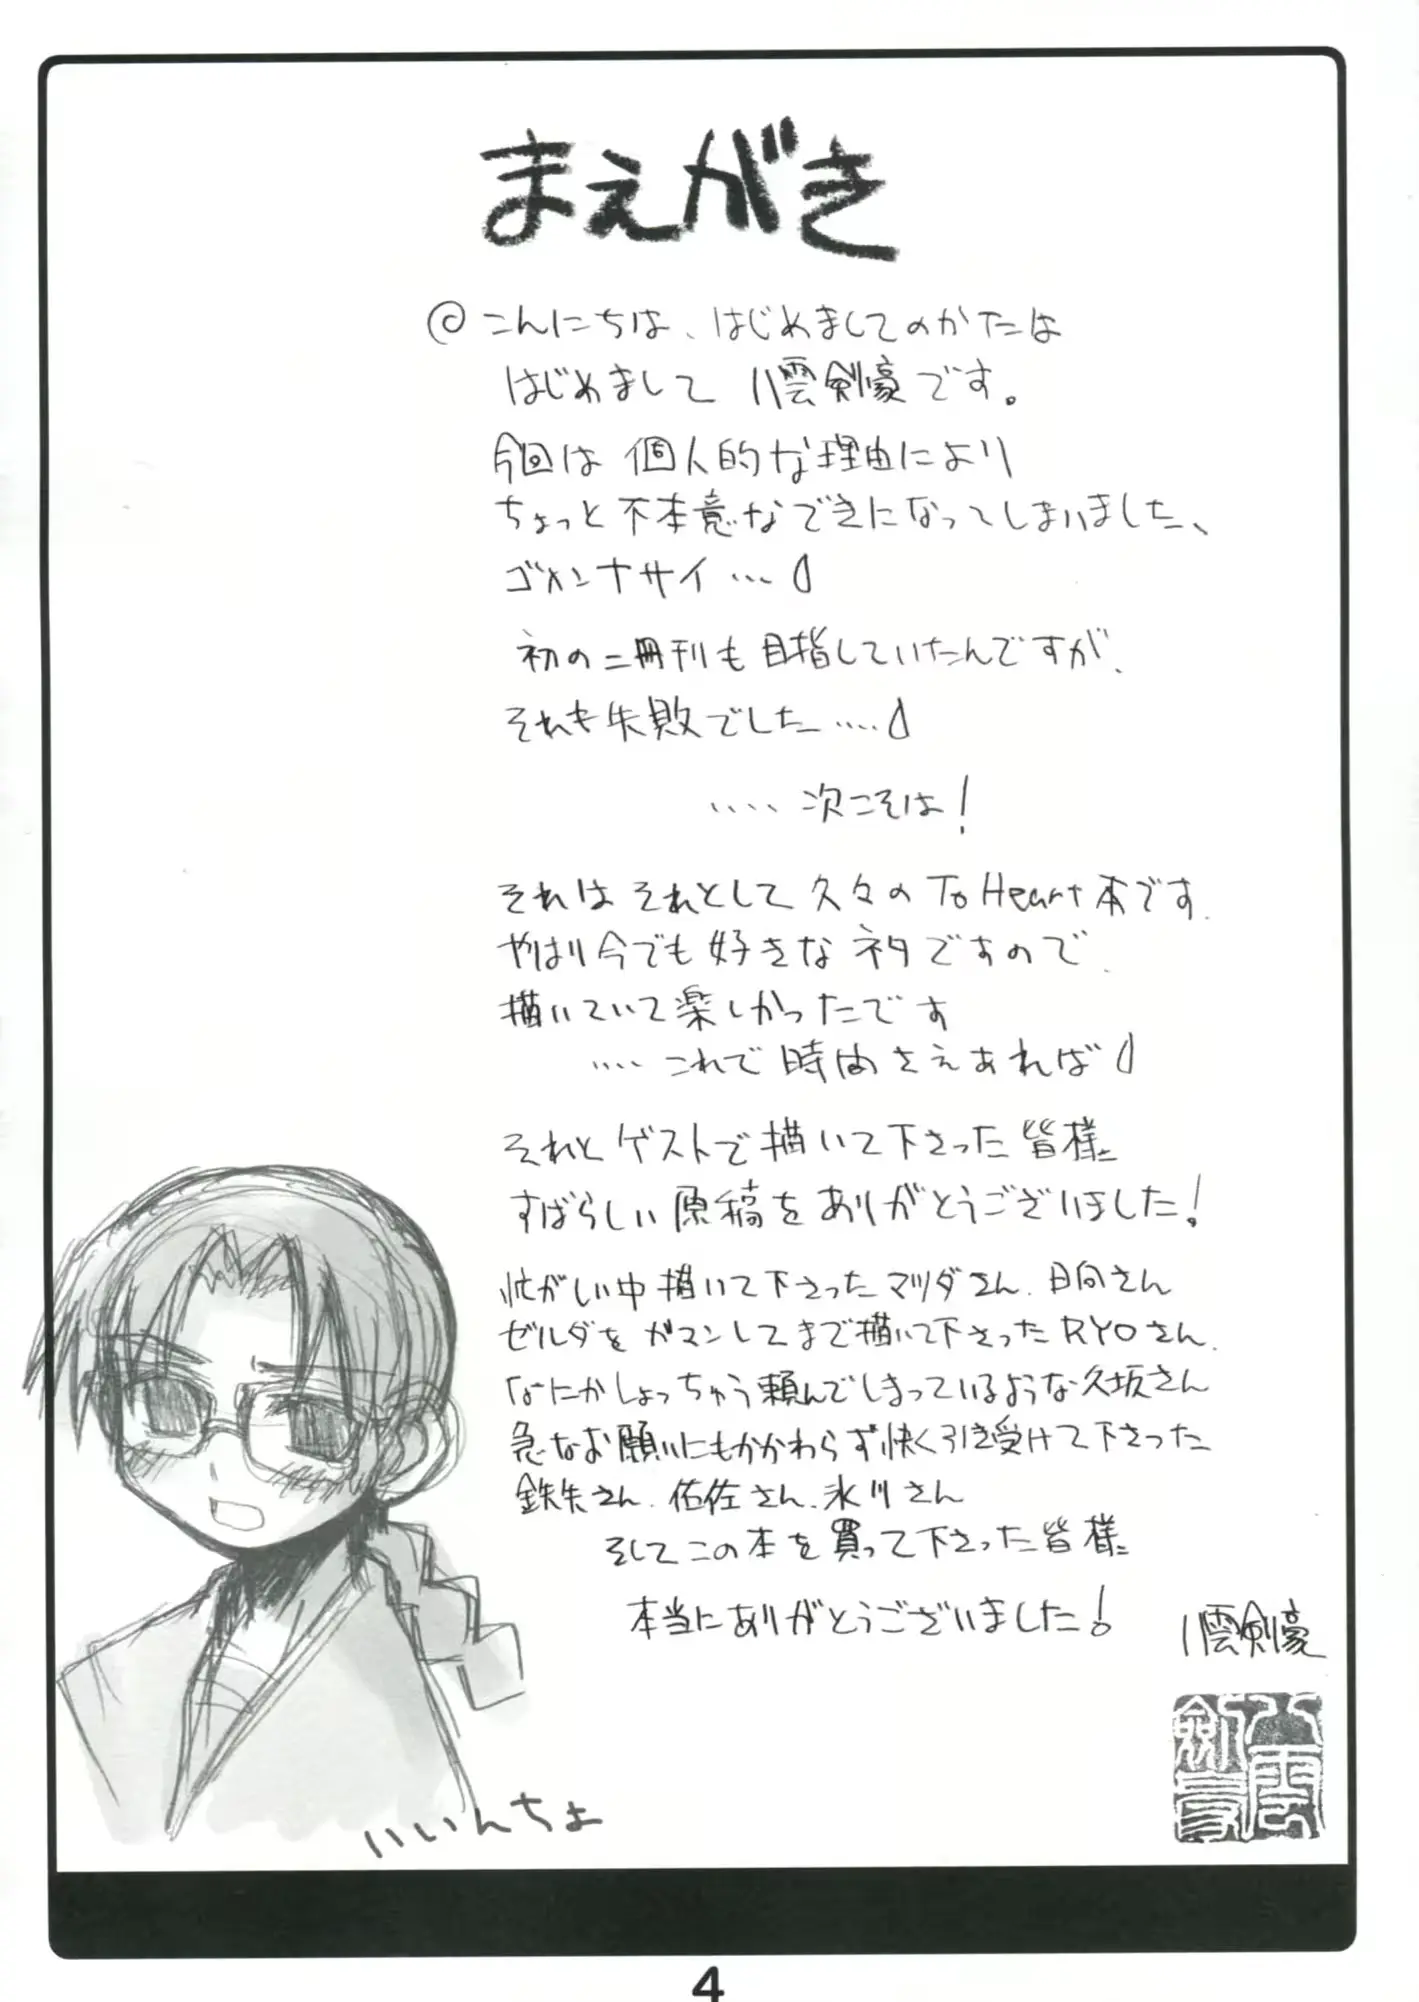 まえがき
@こんにちは、はじめましてのかたは
はじめまして 八雲剣豪です。
今回は個人的な理由により
ちょっと不本意なできになってしまいました、
ゴメンナサイ…
初の二冊刊も目指していたんですが、
それも失敗でした……
‥‥次こそは!
それはそれとして久々のTo Heart本です。
やはり今でも好きなネタですので、
描いていて楽しかったです
‥‥これで時間さえあれば
それとゲストで描いて下さった皆様
すばらしい原稿をありがとうございました!
忙がしい中描いて下さったマツダさん、日向さん
ゼルダをガマンしてまで描いて下さったRYOさん、
なにかしょっちゅう頼んでしまっているような久坂さん
急なお願いにもかかわらず快く引き受けて下さった
鉄矢さん、佑佐さん、氷川さん
そしてこの本を買って下さった皆様
本当にありがとうございました!
八雲剣豪
八雲剣豪
いいんちょ
4